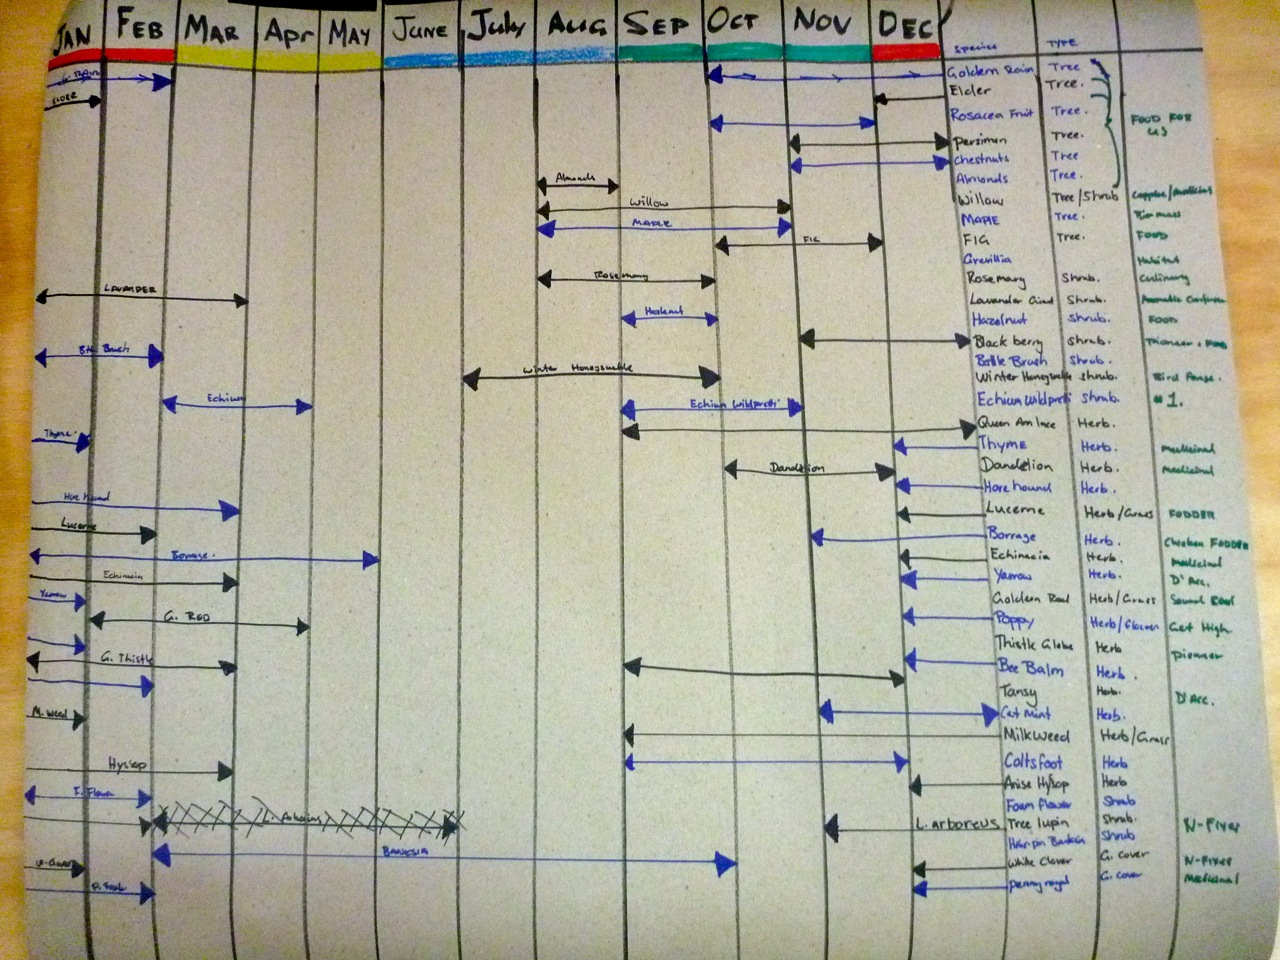 JAN FEB MAR Apr MAY JUNE July AUG SEP OCT NOV DEC
Species TYPE
Goldern Rain Tree
ELDER Elder Tree.
Rosacea Fruit Tree.
FOOD FOR US
persimon Tree.
Chestnuts Tree
Almonds Almonds Tree.
Willow Willow Tree/Shrub
MAPLE MAPLE Tree. Biomass
FIG FIG Tree. FOOD
Grevillia Habitat
Rosemary Rosemary Shrub. Culinary
LAVANDER Lavander Shrub.
Hazelnut Shrub. FOOD
Black berry Shrub. Pioneer. Food
Brush Bottle Brush Shrub.
Winter Honeysuckle Winter Honeysuckle Shrub.
Echium Echium Wildpretti Echium Wildpretti Shrub. #1.
Queen Ann lace Herb.
Thyme. Thyme Herb. medicinal
Dandelion Dandelion Herb. medicinal
Hore hound Hore hound Herb.
Lucerne Lucerne Herb/Grass FODDER
Borrage. Borrage Herb. Chicken FODDER
Echinacia Echinacia Herb. medicinal
Yarrow Yarrow Herb. D'Acc.
G. ROD Goldern Rod Herb/Grass
Poppy Herb/flower Get High
G. Thistle Thistle Globe Herb pioneer
Bee Balm Herb.
Tansy Herb. D'Acc.
Cat mint Herb.
M. Weed Milk weed Herb/Grass
Coltsfoot Herb
Hyssop Anise Hyssop Herb
Foam flower Shrub
L. Arboreus L. ARBOREUS Tree lupin Shrub. N-Fixer
BANKSIA Hairpin Banksia Shrub
White Clover G. cover N-Fixer
pennyroyal G. cover medicinal